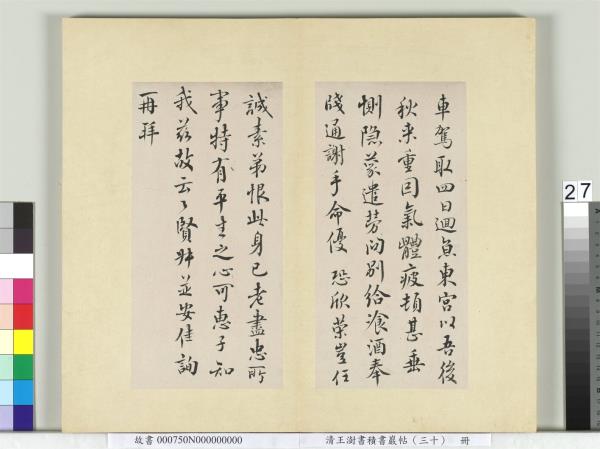 車駕取四日迴魚東宮以吾後
秋来重困氣體疲頓甚垂
惻隐蒙遣勞问別給飡酒奉
牋通謝手命優 恐欣荣豈任
誠素弟恨此身已老盡忠所
事特有平生之心可惠子知
我兹故云々賢姊並安佳詢
再拜
27
故書 000750N000000000
清王澍書積書巖帖（三十） 冊